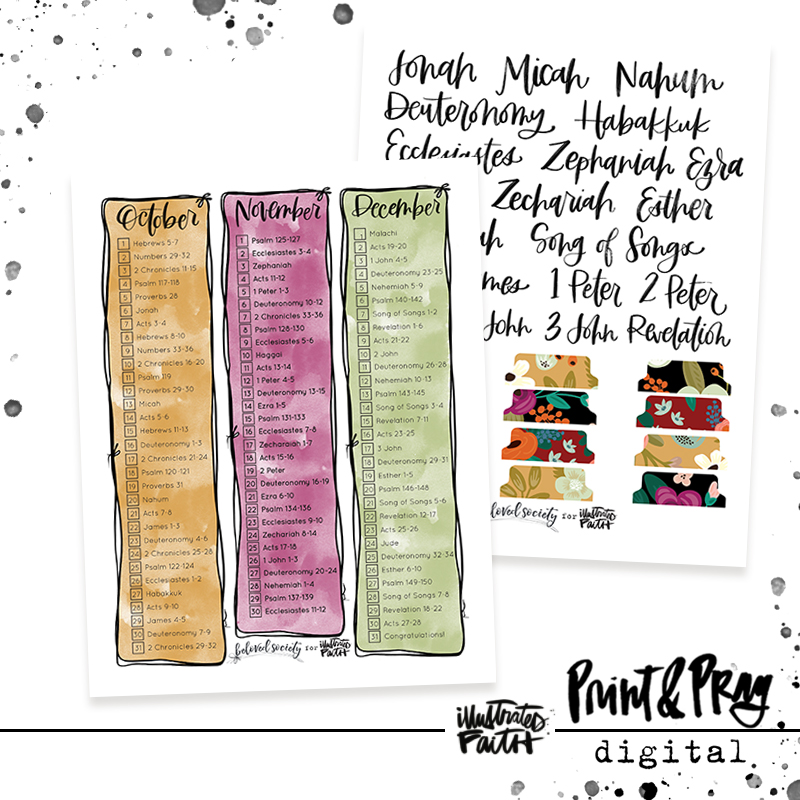 Jonah Micah Nahum
Deuteronomy Habakkuk
Ecclesiastes Zephaniah Ezra
Zechariah Esther
Song of Songs
1 Peter 2 Peter
John 3 John Revelation
beloved society for illustrated faith
October
1 Hebrews 5-7
2 Numbers 29-32
3 2 Chronicles 11-15
4 Psalm 117-118
5 Proverbs 28
6 Jonah
7 Acts 3-4
8 Hebrews 8-10
9 Numbers 33-36
10 2 Chronicles 16-20
11 Psalm 119
12 Proverbs 29-30
13 Micah
14 Acts 5-6
15 Hebrews 11-13
16 Deuteronomy 1-3
17 2 Chronicles 21-24
18 Psalm 120-121
19 Proverbs 31
20 Nahum
21 Acts 7-8
22 James 1-3
23 Deuteronomy 4-6
24 2 Chronicles 25-28
25 Psalm 122-124
26 Ecclesiastes 1-2
27 Habakkuk
28 Acts 9-10
29 James 4-5
30 Deuteronomy 7-9
31 2 Chronicles 29-32
November
1 Psalm 125-127
2 Ecclesiastes 3-4
3 Zephaniah
4 Acts 11-12
5 1 Peter 1-3
6 Deuteronomy 10-12
7 2 Chronicles 33-36
8 Psalm 128-130
9 Ecclesiastes 5-6
10 Haggai
11 Acts 13-14
12 1 Peter 4-5
13 Deuteronomy 13-15
14 Ezra 1-5
15 Psalm 131-133
16 Ecclesiastes 7-8
17 Zechariah 1-7
18 Acts 15-16
19 2 Peter
20 Deuteronomy 16-19
21 Ezra 6-10
22 Psalm 134-136
23 Ecclesiastes 9-10
24 Zechariah 8-14
25 Acts 17-18
26 1 John 1-3
27 Deuteronomy 20-24
28 Nehemiah 1-4
29 Psalm 137-139
30 Ecclesiastes 11-12
December
1 Malachi
2 Acts 19-20
3 1 John 4-5
4 Deuteronomy 23-25
5 Nehemiah 5-9
6 Psalm 140-142
7 Song of Songs 1-2
8 Revelation 1-6
9 Acts 21-22
10 2 John
11 Deuteronomy 26-28
12 Nehemiah 10-13
13 Psalm 143-145
14 Song of Songs 3-4
15 Revelation 7-11
16 Acts 23-25
17 3 John
18 Deuteronomy 29-31
19 Esther 1-5
20 Psalm 146-148
21 Song of Songs 5-6
22 Revelation 12-17
23 Acts 25-26
24 Jude
25 Deuteronomy 32-34
26 Esther 6-10
27 Psalm 149-150
28 Song of Songs 7-8
29 Revelation 18-22
30 Acts 27-28
31 Congratulations!
beloved society for illustrated faith
illustrated faith
Print & Pray
digital